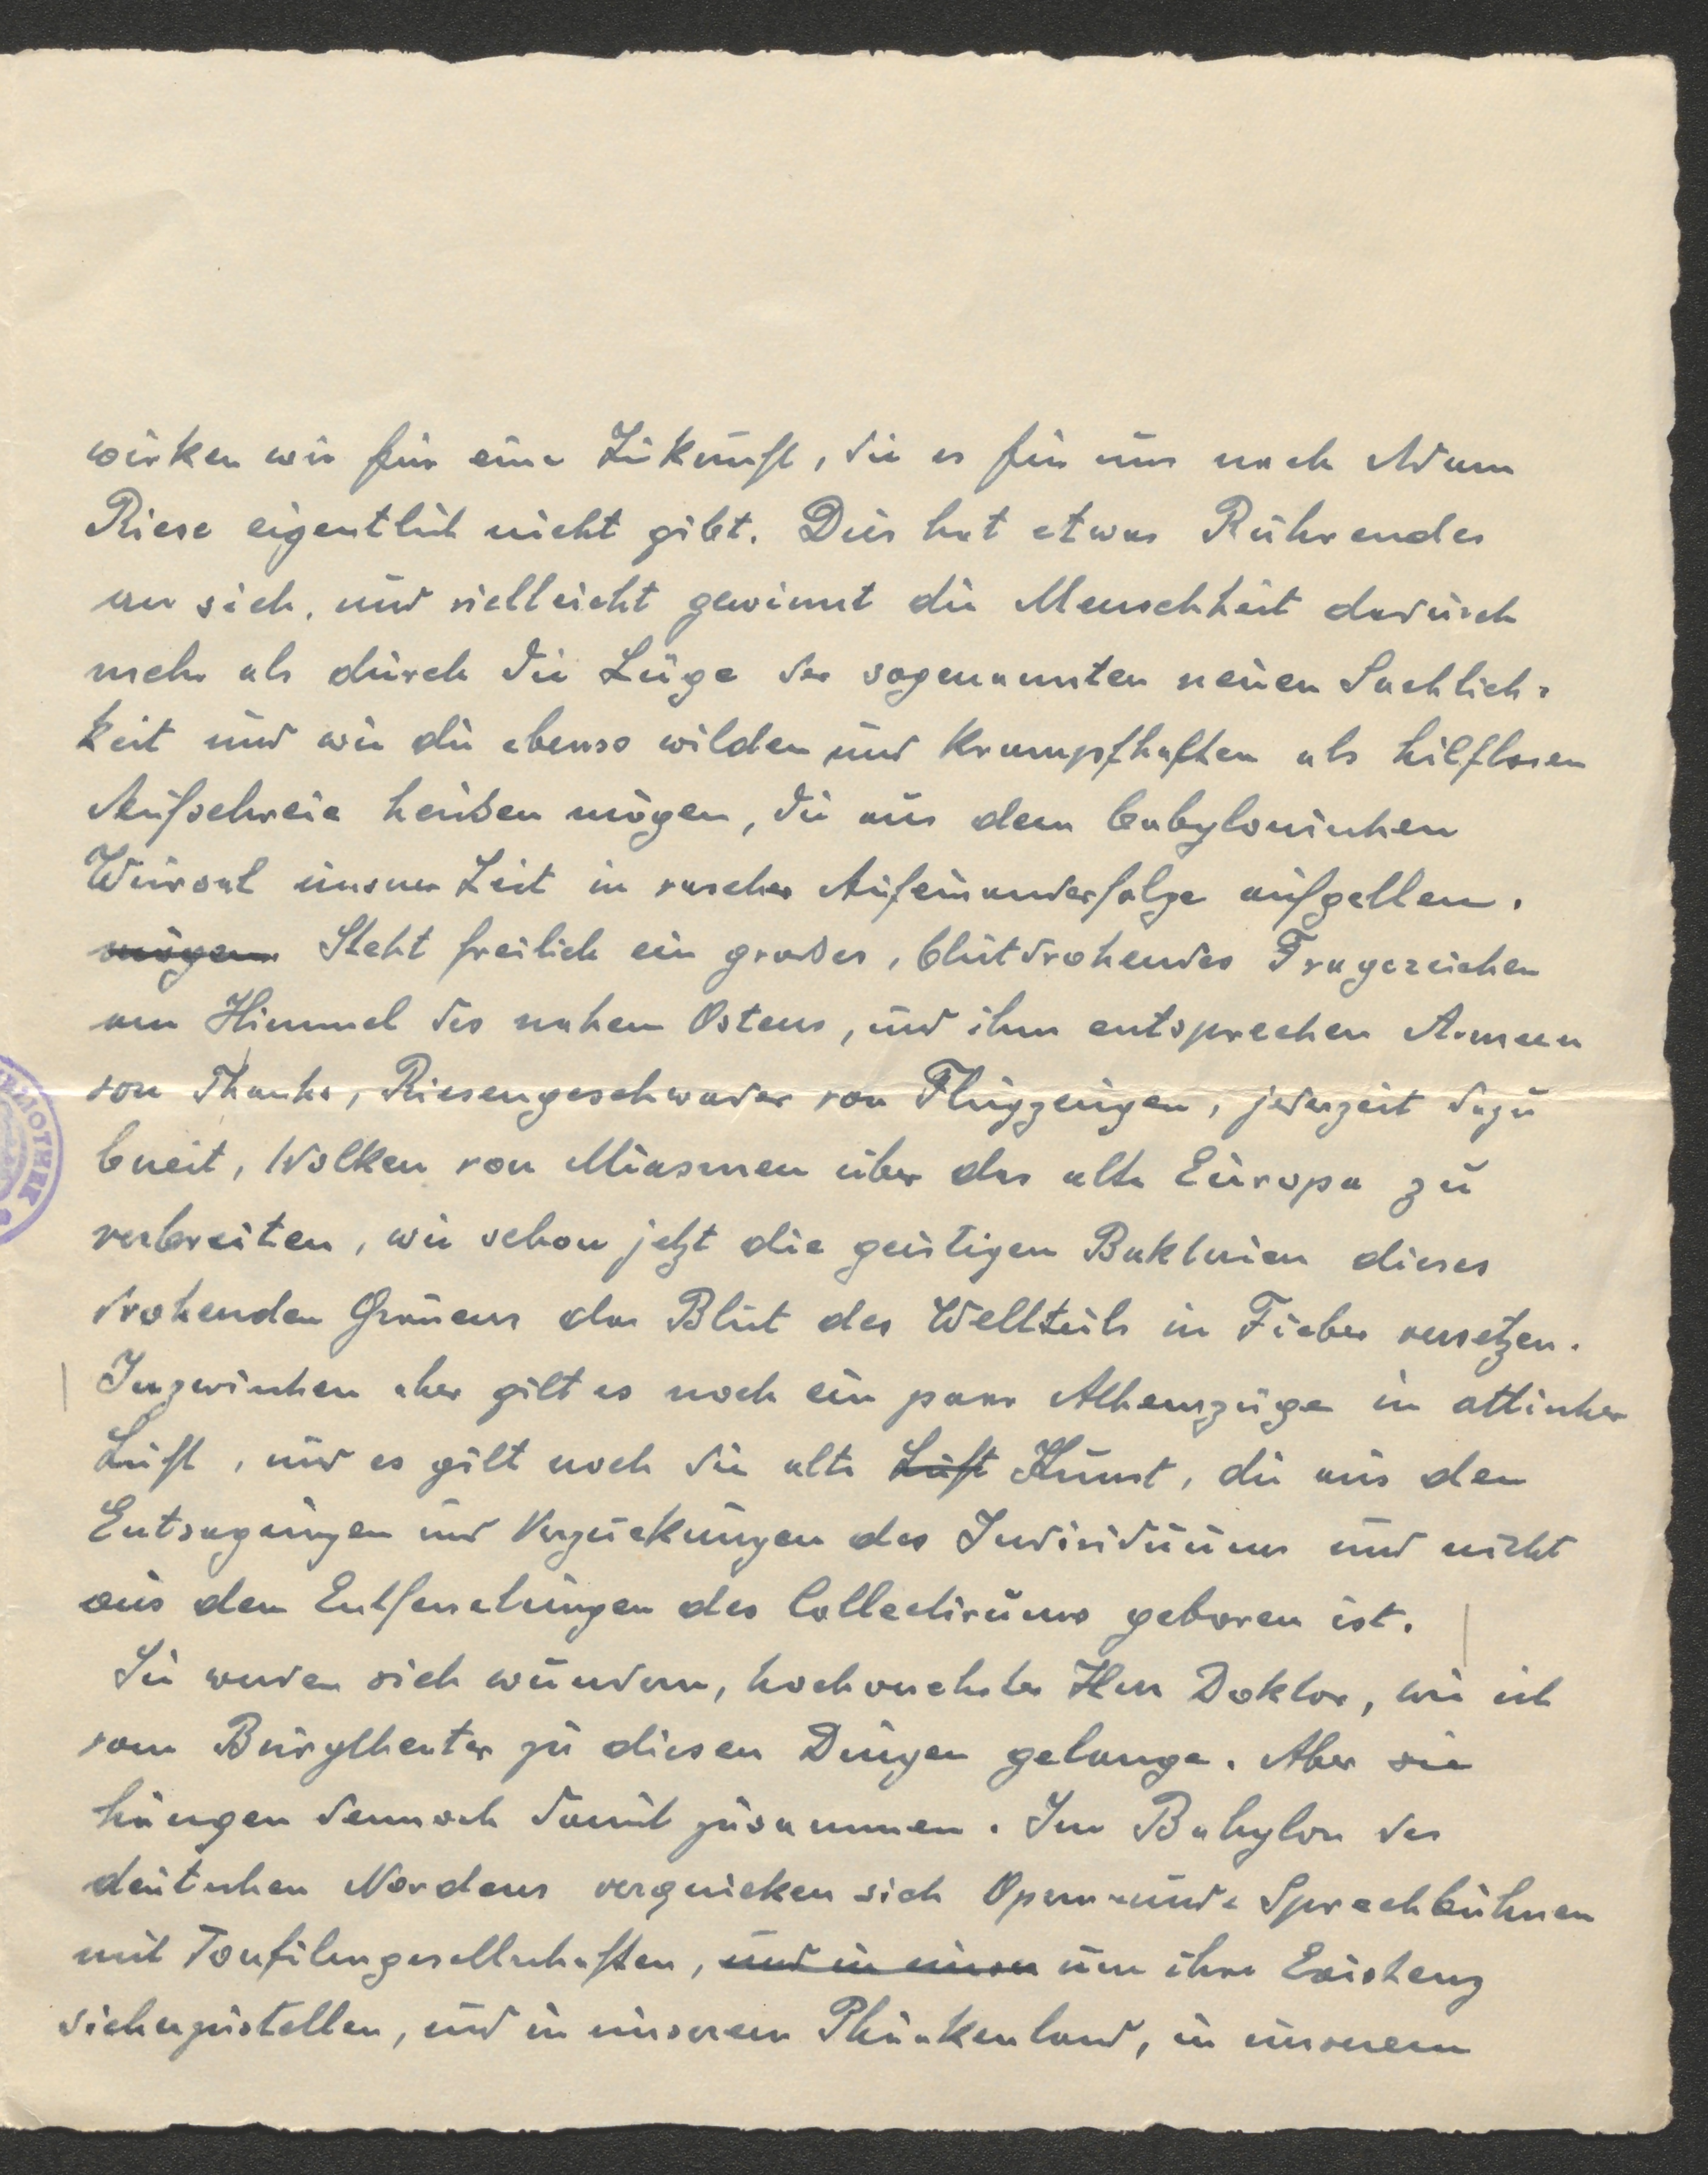 wirken wir für eine Zukunft, die es für uns nach Adam
Riese eigentlich nicht gibt. Dies hat etwas Rührendes
an sich, und vielleicht gewinnt die Menschheit dadurch
mehr als durch die Lüge der sogenannten neuen Sachlich-
keit und wie die ebenso wilden und krampfhaften als hilflosen
Aufschreie heißen mögen, die aus dem babylonischen
Wirrsal unserer Zeit in rascher Aufeinanderfolge aufgellen.
mögen. Steht freilich ein großes, blutdrohendes Fragezeichen
am Himmel des nahen Ostens, und ihm entsprechen Armeen
von Thanks, Riesengeschwader von Flugzeugen, jederzeit dazu
bereit, Wolken von Miasmen über das alte Europa zu
verbreiten, wie schon jetzt die geistigen Bakterien dieses
drohenden Grauens das Blut des Weltteils in Fieber versetzen.
Inzwischen aber gilt es noch ein paar Athemzüge in attischer
Luft, und es gilt noch die alte Luft Kunst, die aus den
Entsagungen und Verzückungen des Individuums und nicht
aus den des Collectivums geboren ist.
Sie werden sich wundern, hochverehrter Herr Doktor, wie ich
vom Burgtheater zu diesen Dingen gelange. Aber sie
hängen dennoch damit zusammen. Im Babylon des
deutschen Nordens verquicken sich Opern- und Sprechbühnen
mit Tonfilmgesellschaften, und in unserm um ihre Existenz
sicherzustellen, und in unserem Phäakenland, in unserem
BIBLIOTHEK